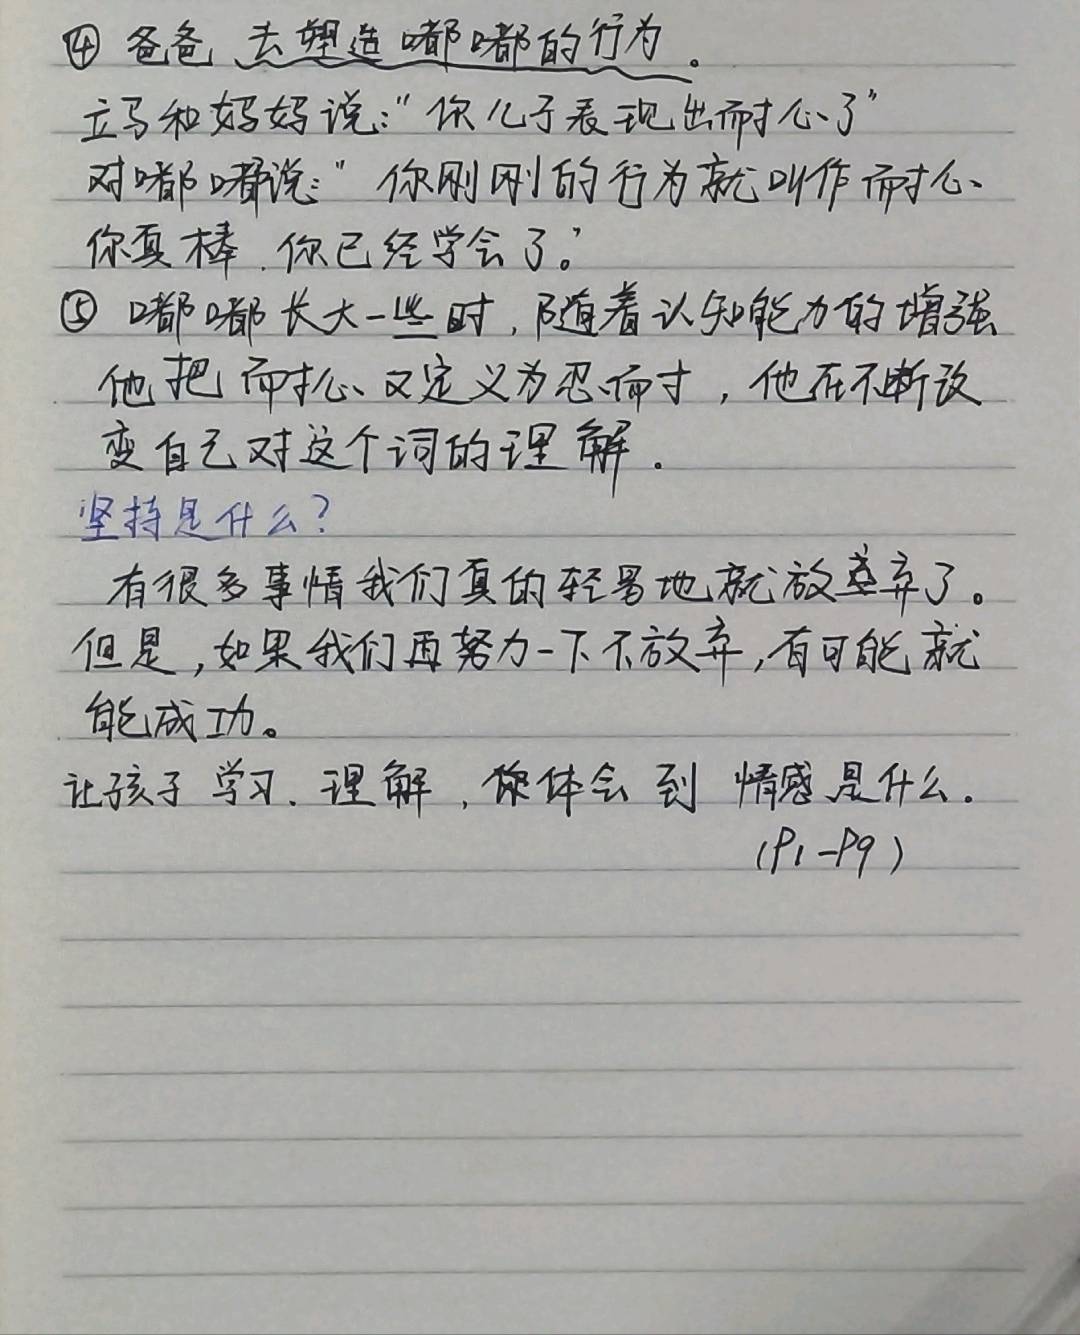 ④ 爸爸去塑造嘟嘟的行为。
立马和妈妈说:"你儿子表现出耐心了"
对嘟嘟说:"你刚刚的行为就叫作耐心、
你真棒.你已经学会了。"
⑤ 嘟嘟长大一些时,随着认知能力的增强
他把耐心、又定义为忍耐,他在不断改
变自己对这个词的理解.
坚持是什么?
有很多事情我们真的轻易地就放弃了。
但是,如果我们再努力一下不放弃,有可能就
能成功。
让孩子学习、理解,体会到情感是什么.
(P1-P9)